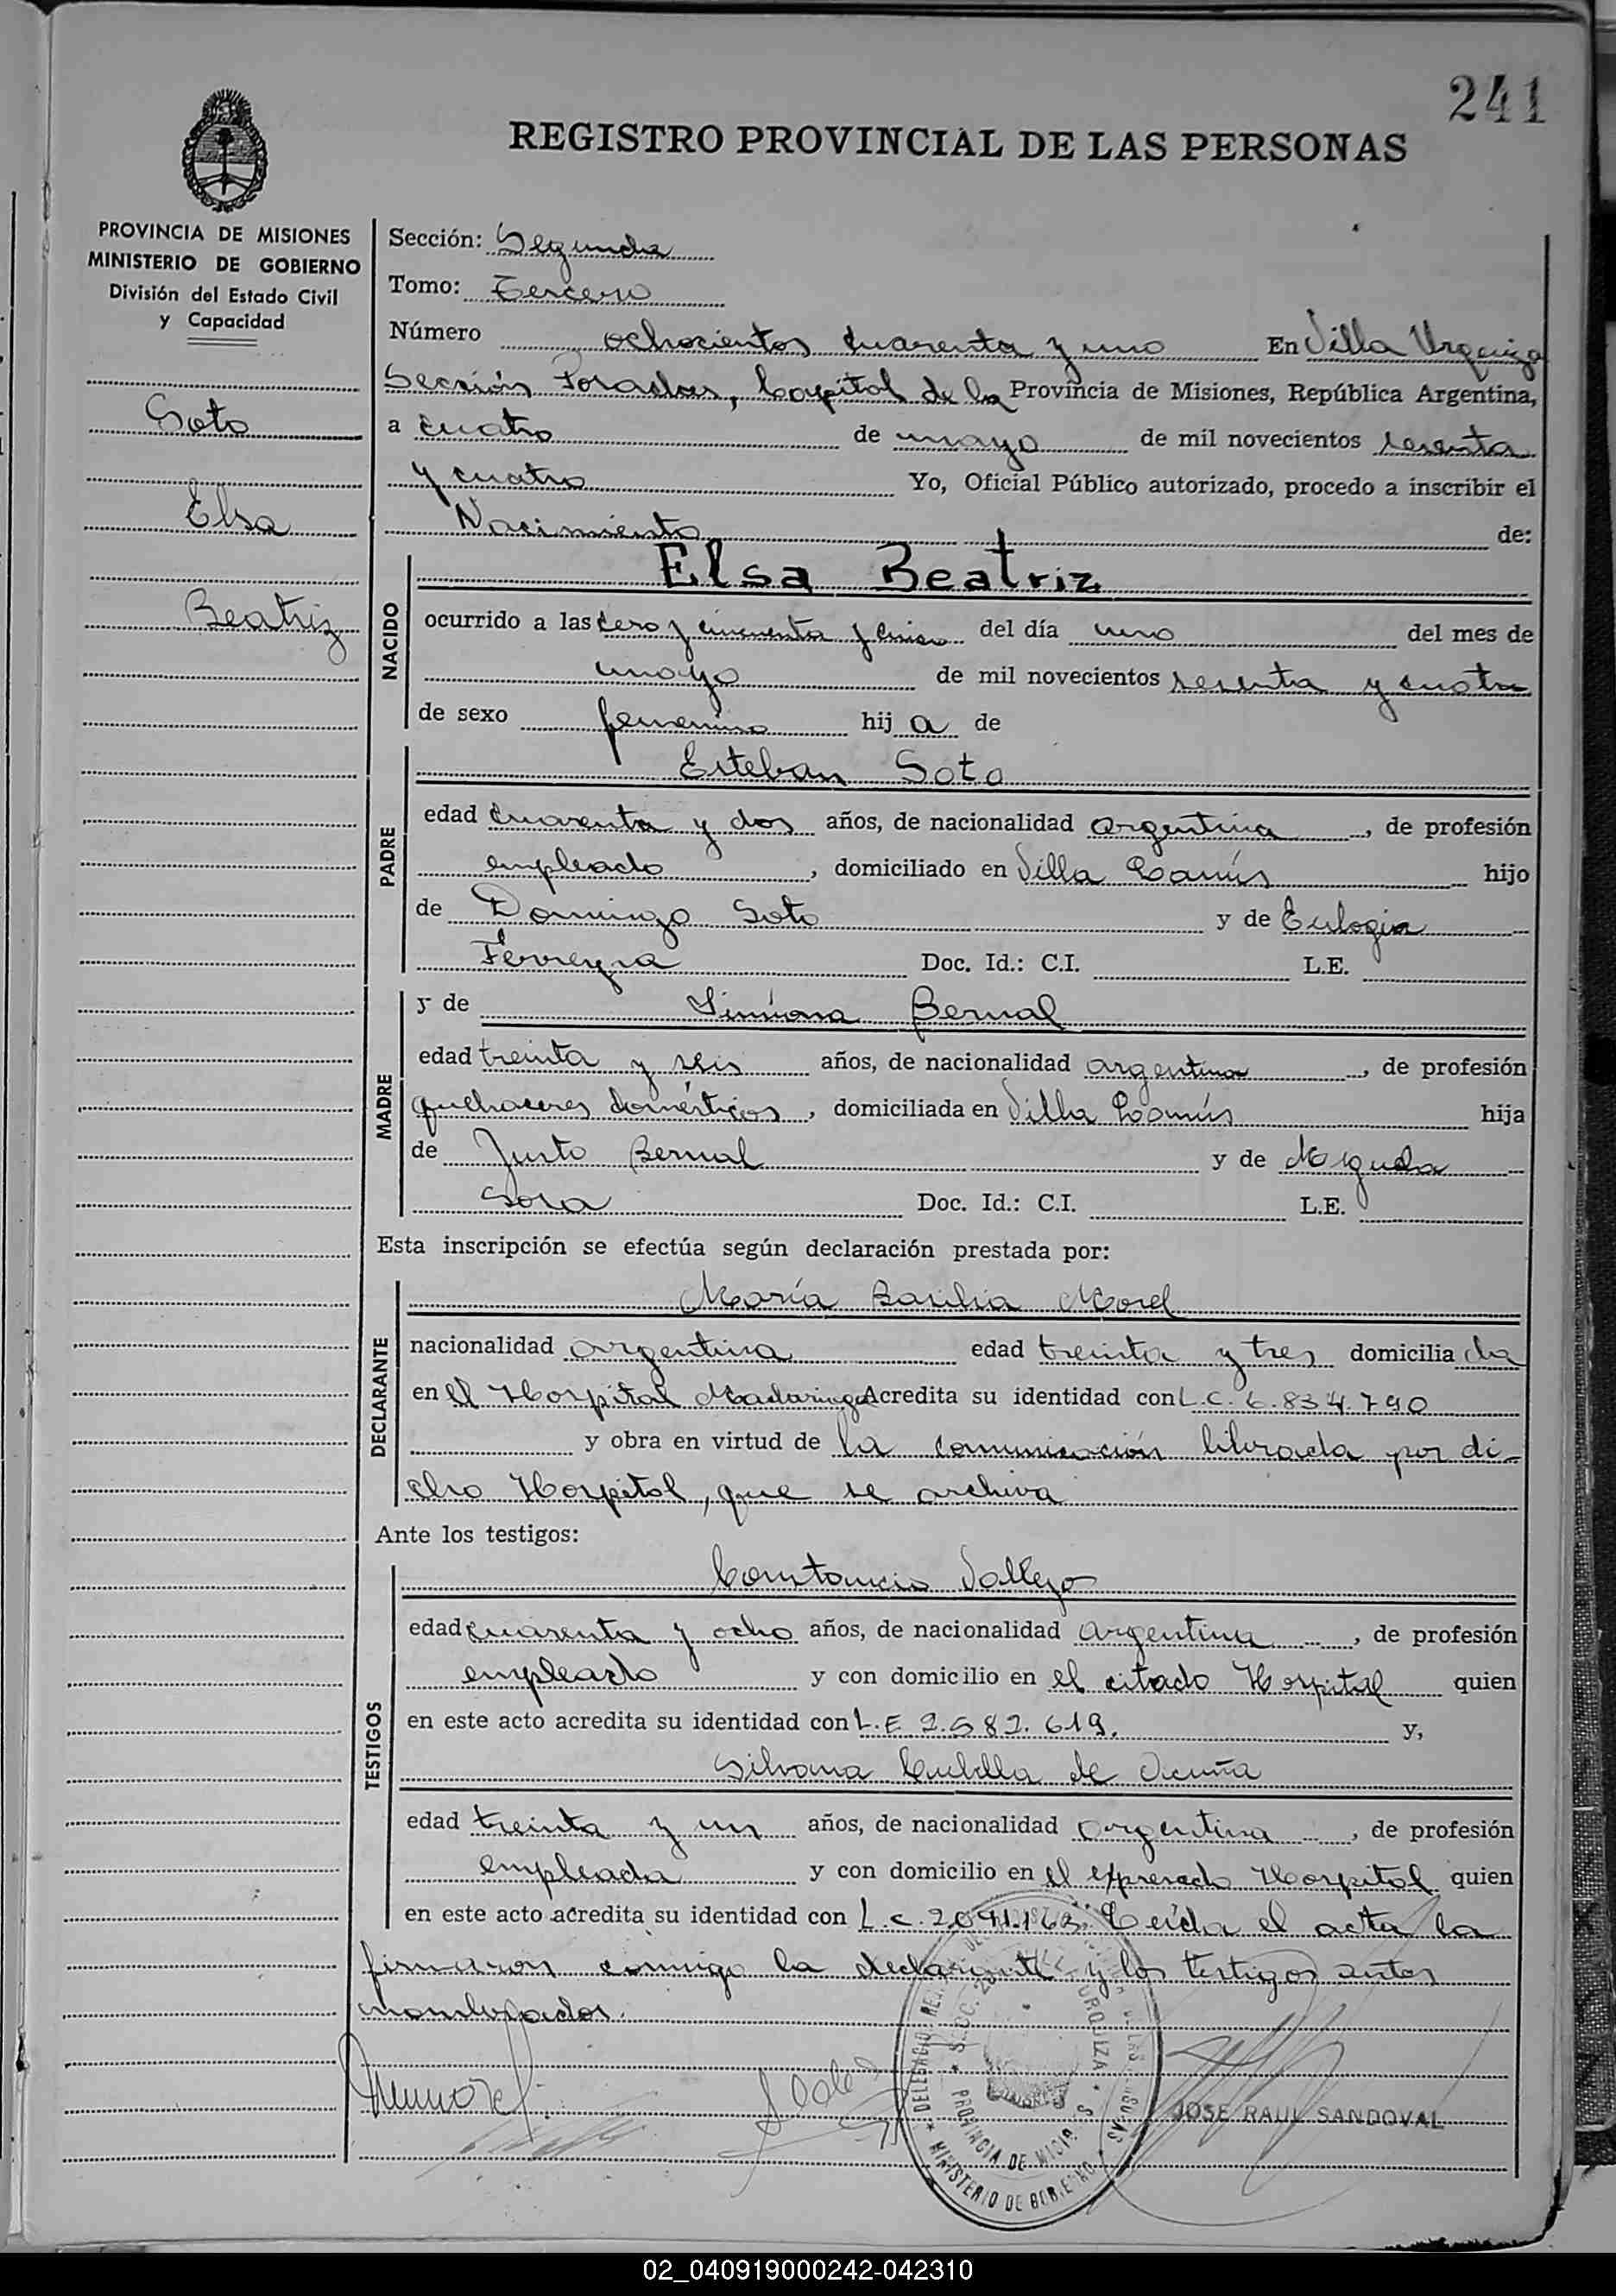 241
REGISTRO PROVINCIAL DE LAS PERSONAS
PROVINCIA DE MISIONES
MINISTERIO DE GOBIERNO
División del Estado Civil
y Capacidad
Soto
Elsa
Beatriz
Sección: Segunda
Tomo: Tercero
Número ochocientos cuarenta y uno En Villa Urquiza
Sección Posadas, Capital de la Provincia de Misiones, República Argentina,
a cuatro de mayo de mil novecientos sesenta
y cuatro Yo, Oficial Público autorizado, procedo a inscribir el
Nacimiento de:
NACIDO
Elsa Beatriz
ocurrido a las cero y cincuenta y cinco del día uno del mes de
mayo de mil novecientos sesenta y cuatro
de sexo femenino hij a de
PADRE
Esteban Soto
edad cuarenta y dos años, de nacionalidad argentina, de profesión
empleado, domiciliado en Villa Lanús hijo
de Domingo Soto y de Eulogia
Ferreyra Doc. Id.: C.I. L.E.
MADRE
y de Simiona Bernal
edad treinta y seis años, de nacionalidad argentina, de profesión
quehaceres domésticos, domiciliada en Villa Lanús hija
de Justo Bernal y de Miguela
Sosa Doc. Id.: C.I. L.E.
Esta inscripción se efectúa según declaración prestada por:
DECLARANTE
María Basilia Morel
nacionalidad argentina edad treinta y tres domicilia da
en el Hospital Madariaga Acredita su identidad con L.C. 6.834.790
y obra en virtud de la comunicación librada por di-
cho Hospital, que se archiva
Ante los testigos:
TESTIGOS
Constancio Vallejo
edad cuarenta y ocho años, de nacionalidad argentina, de profesión
empleado y con domicilio en el citado Hospital quien
en este acto acredita su identidad con L.E 2.582.619. y,
Silvana Cubilla de Vicuña
edad treinta y un años, de nacionalidad argentina, de profesión
empleada y con domicilio en el expresado Hospital quien
en este acto acredita su identidad con L.C. Leída el acta la
firmaron conmigo la declarante y los testigos antes
nombrados.
DELEGACIÓN
SECC. URQUIZA
PROVINCIA DE MISIONES
MINISTERIO DE GOBIERNO
JOSE RAUL SANDOVAL
02_040919000242-042310